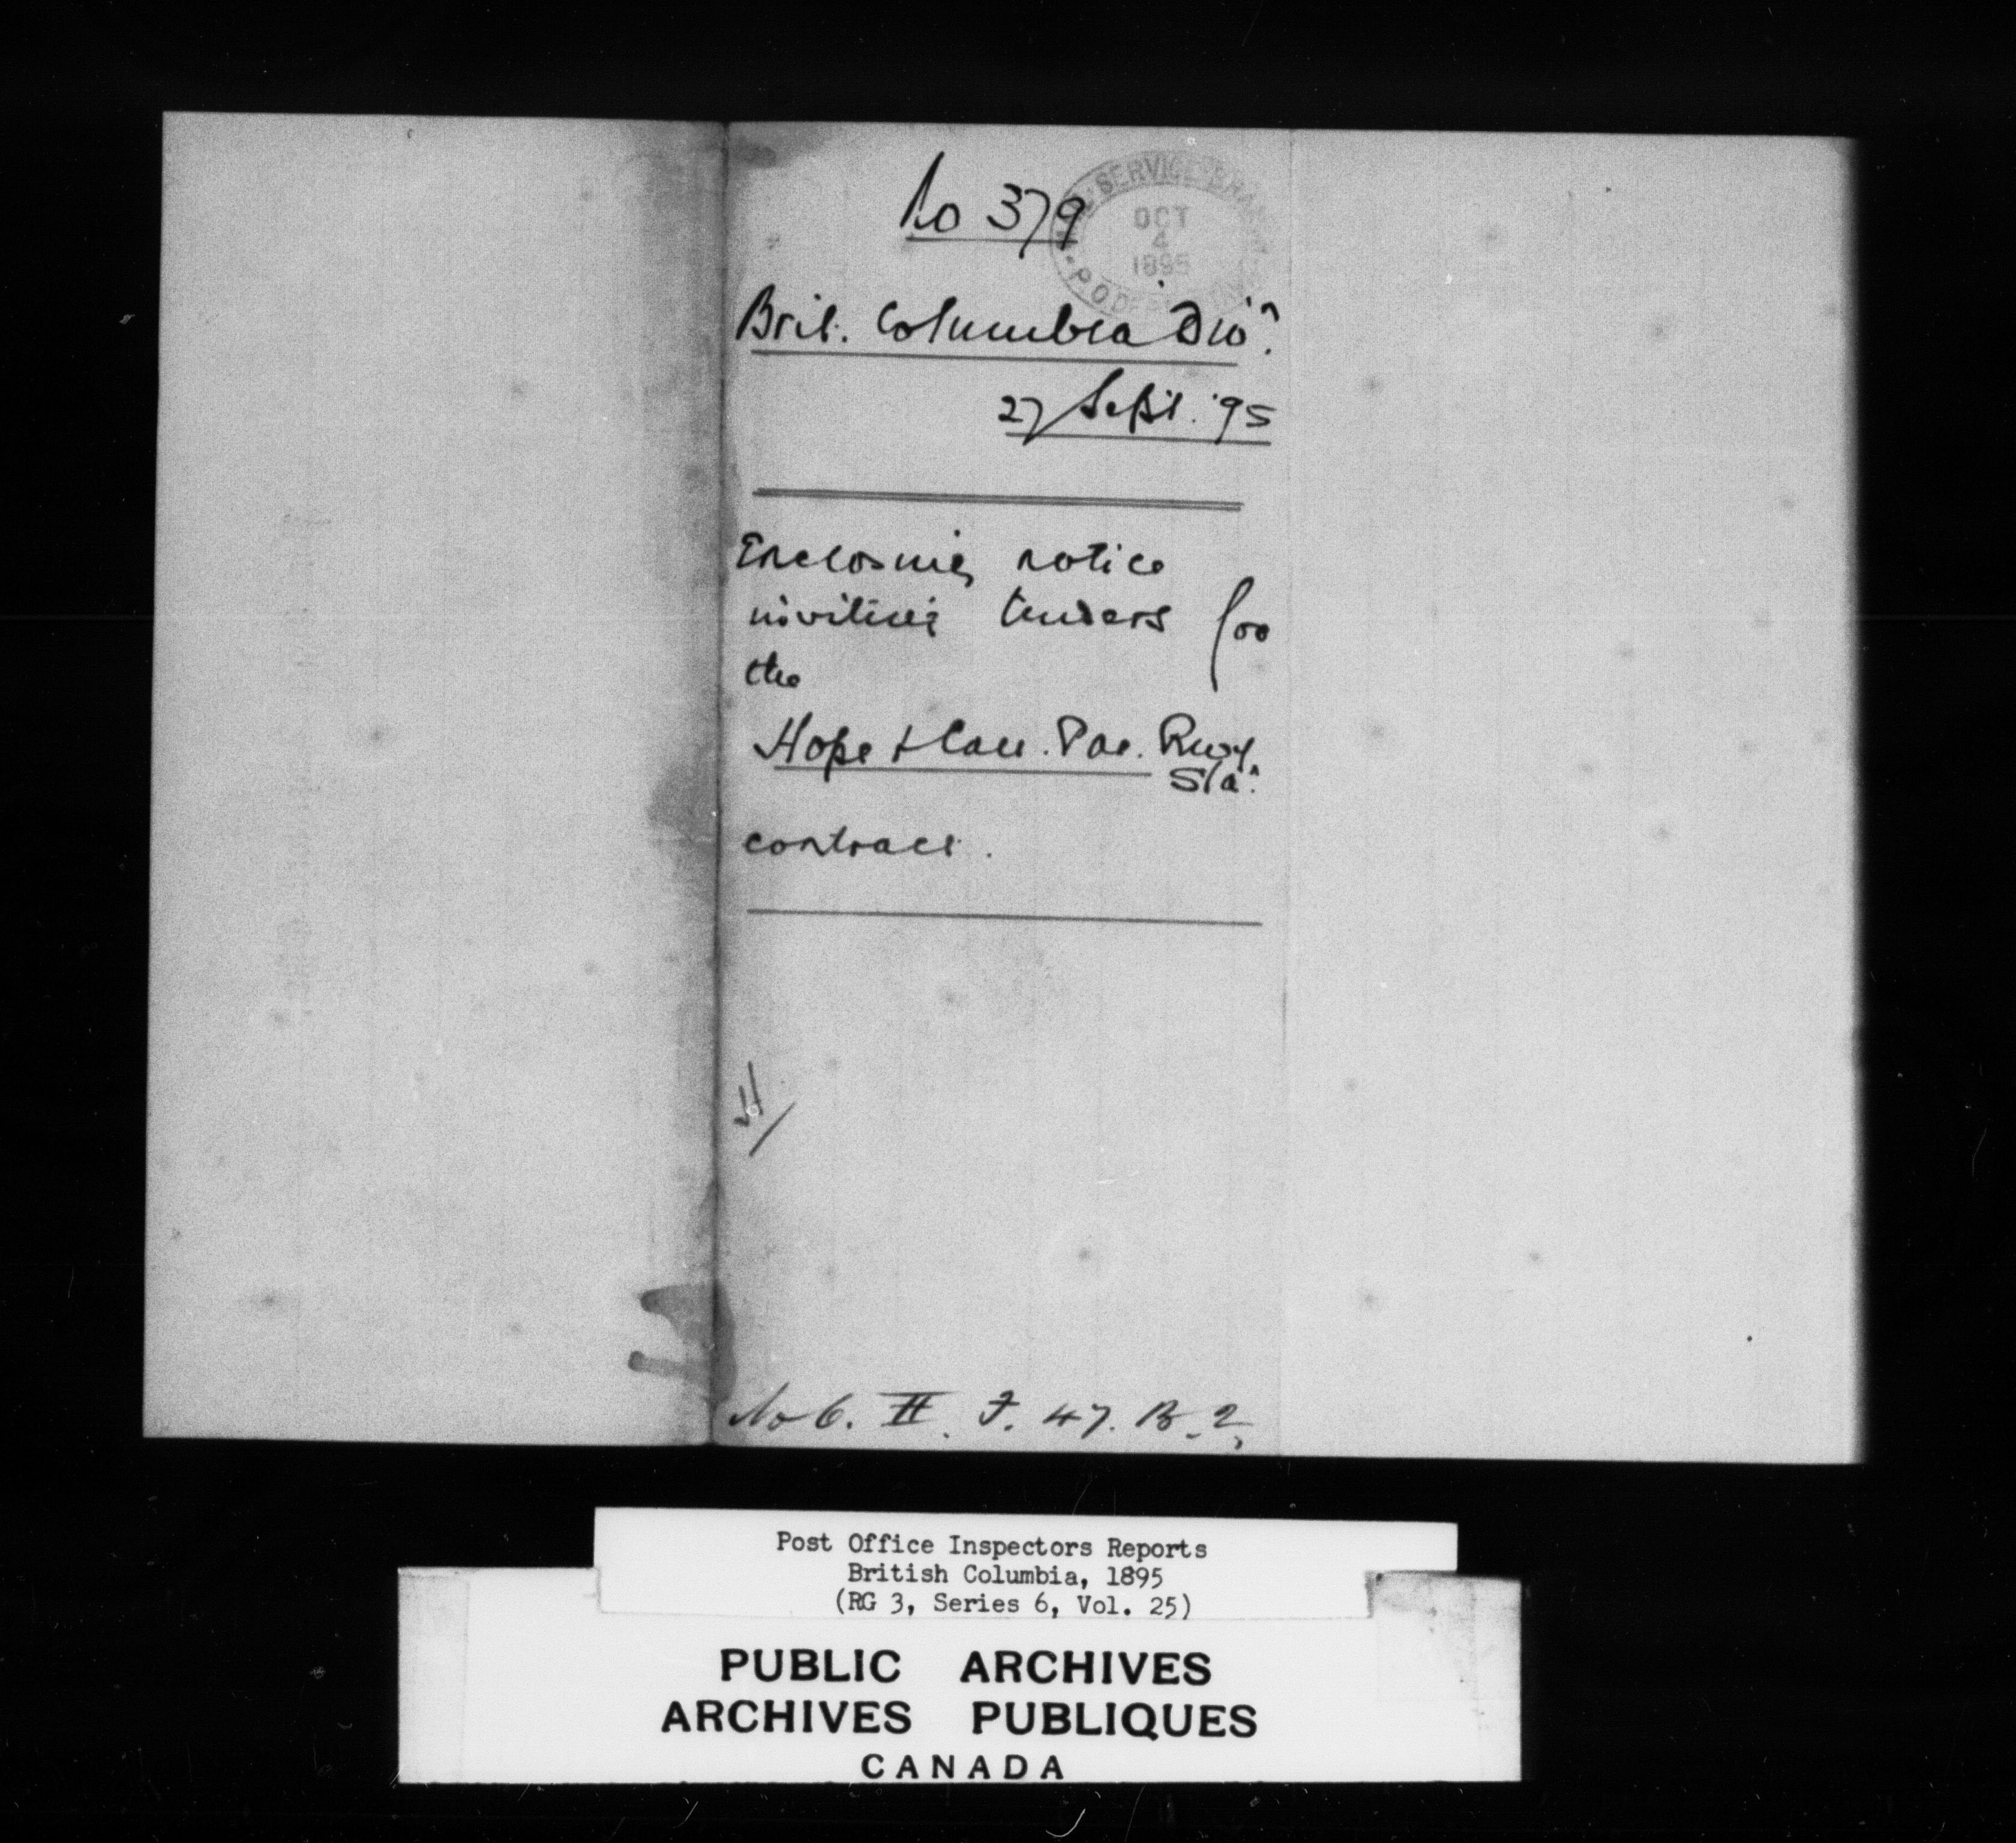 No 379
MAIL SERVICE BRANCH
OCT
4
1895
P.O. DEPT
Brit. Columbia Divn.
27 Sept. '95
Enclosing notice
inviting tenders for
the
Hope & Can. Pac. Rwy
Stan.
contract.
No 6. II. J. 47. B. 2,
Post Office Inspectors Reports
British Columbia, 1895
(RG 3, Series 6, Vol. 25)
PUBLIC ARCHIVES
ARCHIVES PUBLIQUES
CANADA